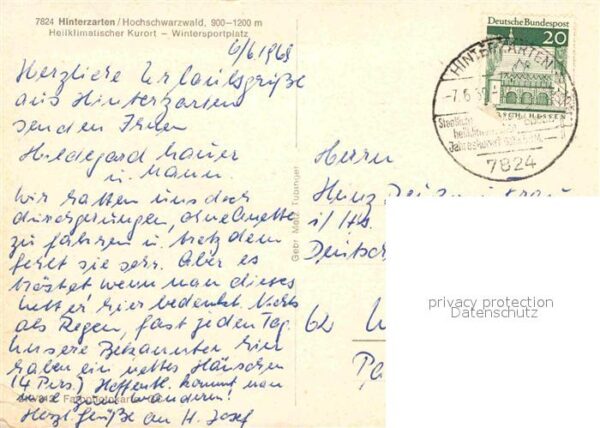 7824 Hinterzarten / Hochschwarzwald, 900-1200 m
Heilklimatischer Kurort – Wintersportplatz
6/6.1969
Herzliche Urlaubsgrüße
aus Hinterzarten
senden Ihnen
Hildegard
u. Mann.
Wir hatten uns doch
durchgerungen, ohne Anette
zu fahren u. trotzdem
fehlt sie sehr. Aber es
tröstet wenn man dieses
hier bedenkt. Nichts
als Regen, fast jeden Tag.
Unsere Bekannten hier
haben ein nettes Häuschen
(4 Pers.) Hoffentl. kommt man
mal zum wandern!
Herzl. Grüße an H. Josef
Gebr. Metz Tübingen
Deutsche Bundespost
20
HINTERZARTEN
-7.6.69
7824
Herrn
Heinz
i/Hs.
Deutsch
62 W
privacy protection
Datenschutz